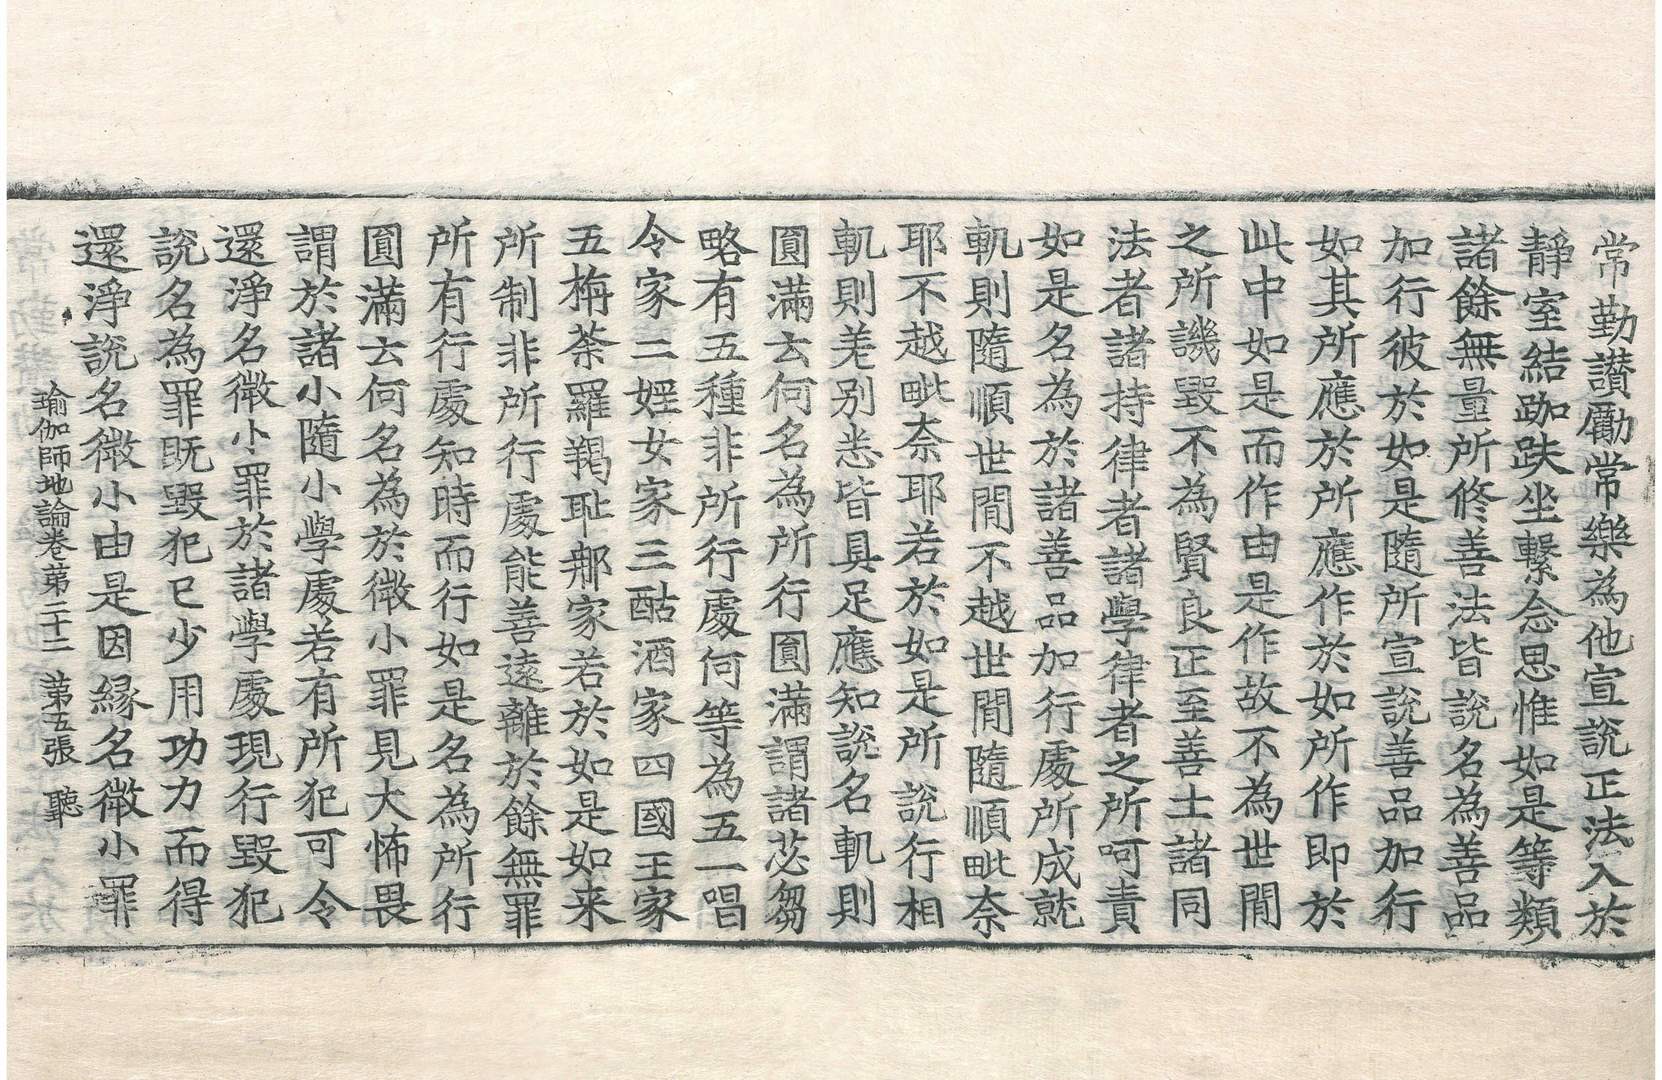 常勤讃勵常樂為他宣說正法入於
靜室結跏趺坐繫念思惟如是等類
諸餘無量所修善法皆說名為善品
加行彼於如是隨所宣說善品加行
如其所應於所應作於如所作即於
此中如是而作由是作故不為世間
之所譏毀不為賢良正至善士諸同
法者諸持律者諸學律者之所呵責
如是名為於諸善品加行處所成就
軌則隨順世間不越世間隨順毗奈
耶不越毗奈耶若於如是所說行相
軌則差別悉皆具足應知說名軌則
圓滿云何名為所行圓滿謂諸苾芻
略有五種非所行處何等為五一唱
令家二婬女家三酤酒家四國王家
五栴荼羅羯恥那家若於如是如来
所制非所行處能善遠離於餘無罪
所有行處知時而行如是名為所行
圓滿云何名為於微小罪見大怖畏
謂於諸小隨小學處若有所犯可令
還淨名微小罪於諸學處現行毀犯
說名為罪既毀犯已少用功力而得
還淨說名微小由是因縁名微小罪
瑜伽師地論卷第二十二　第五張　聽